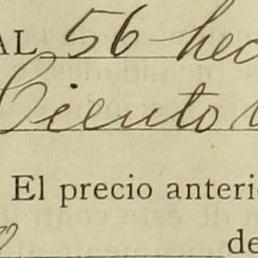 AL 56 hec
Ciento
El precio anteri
de